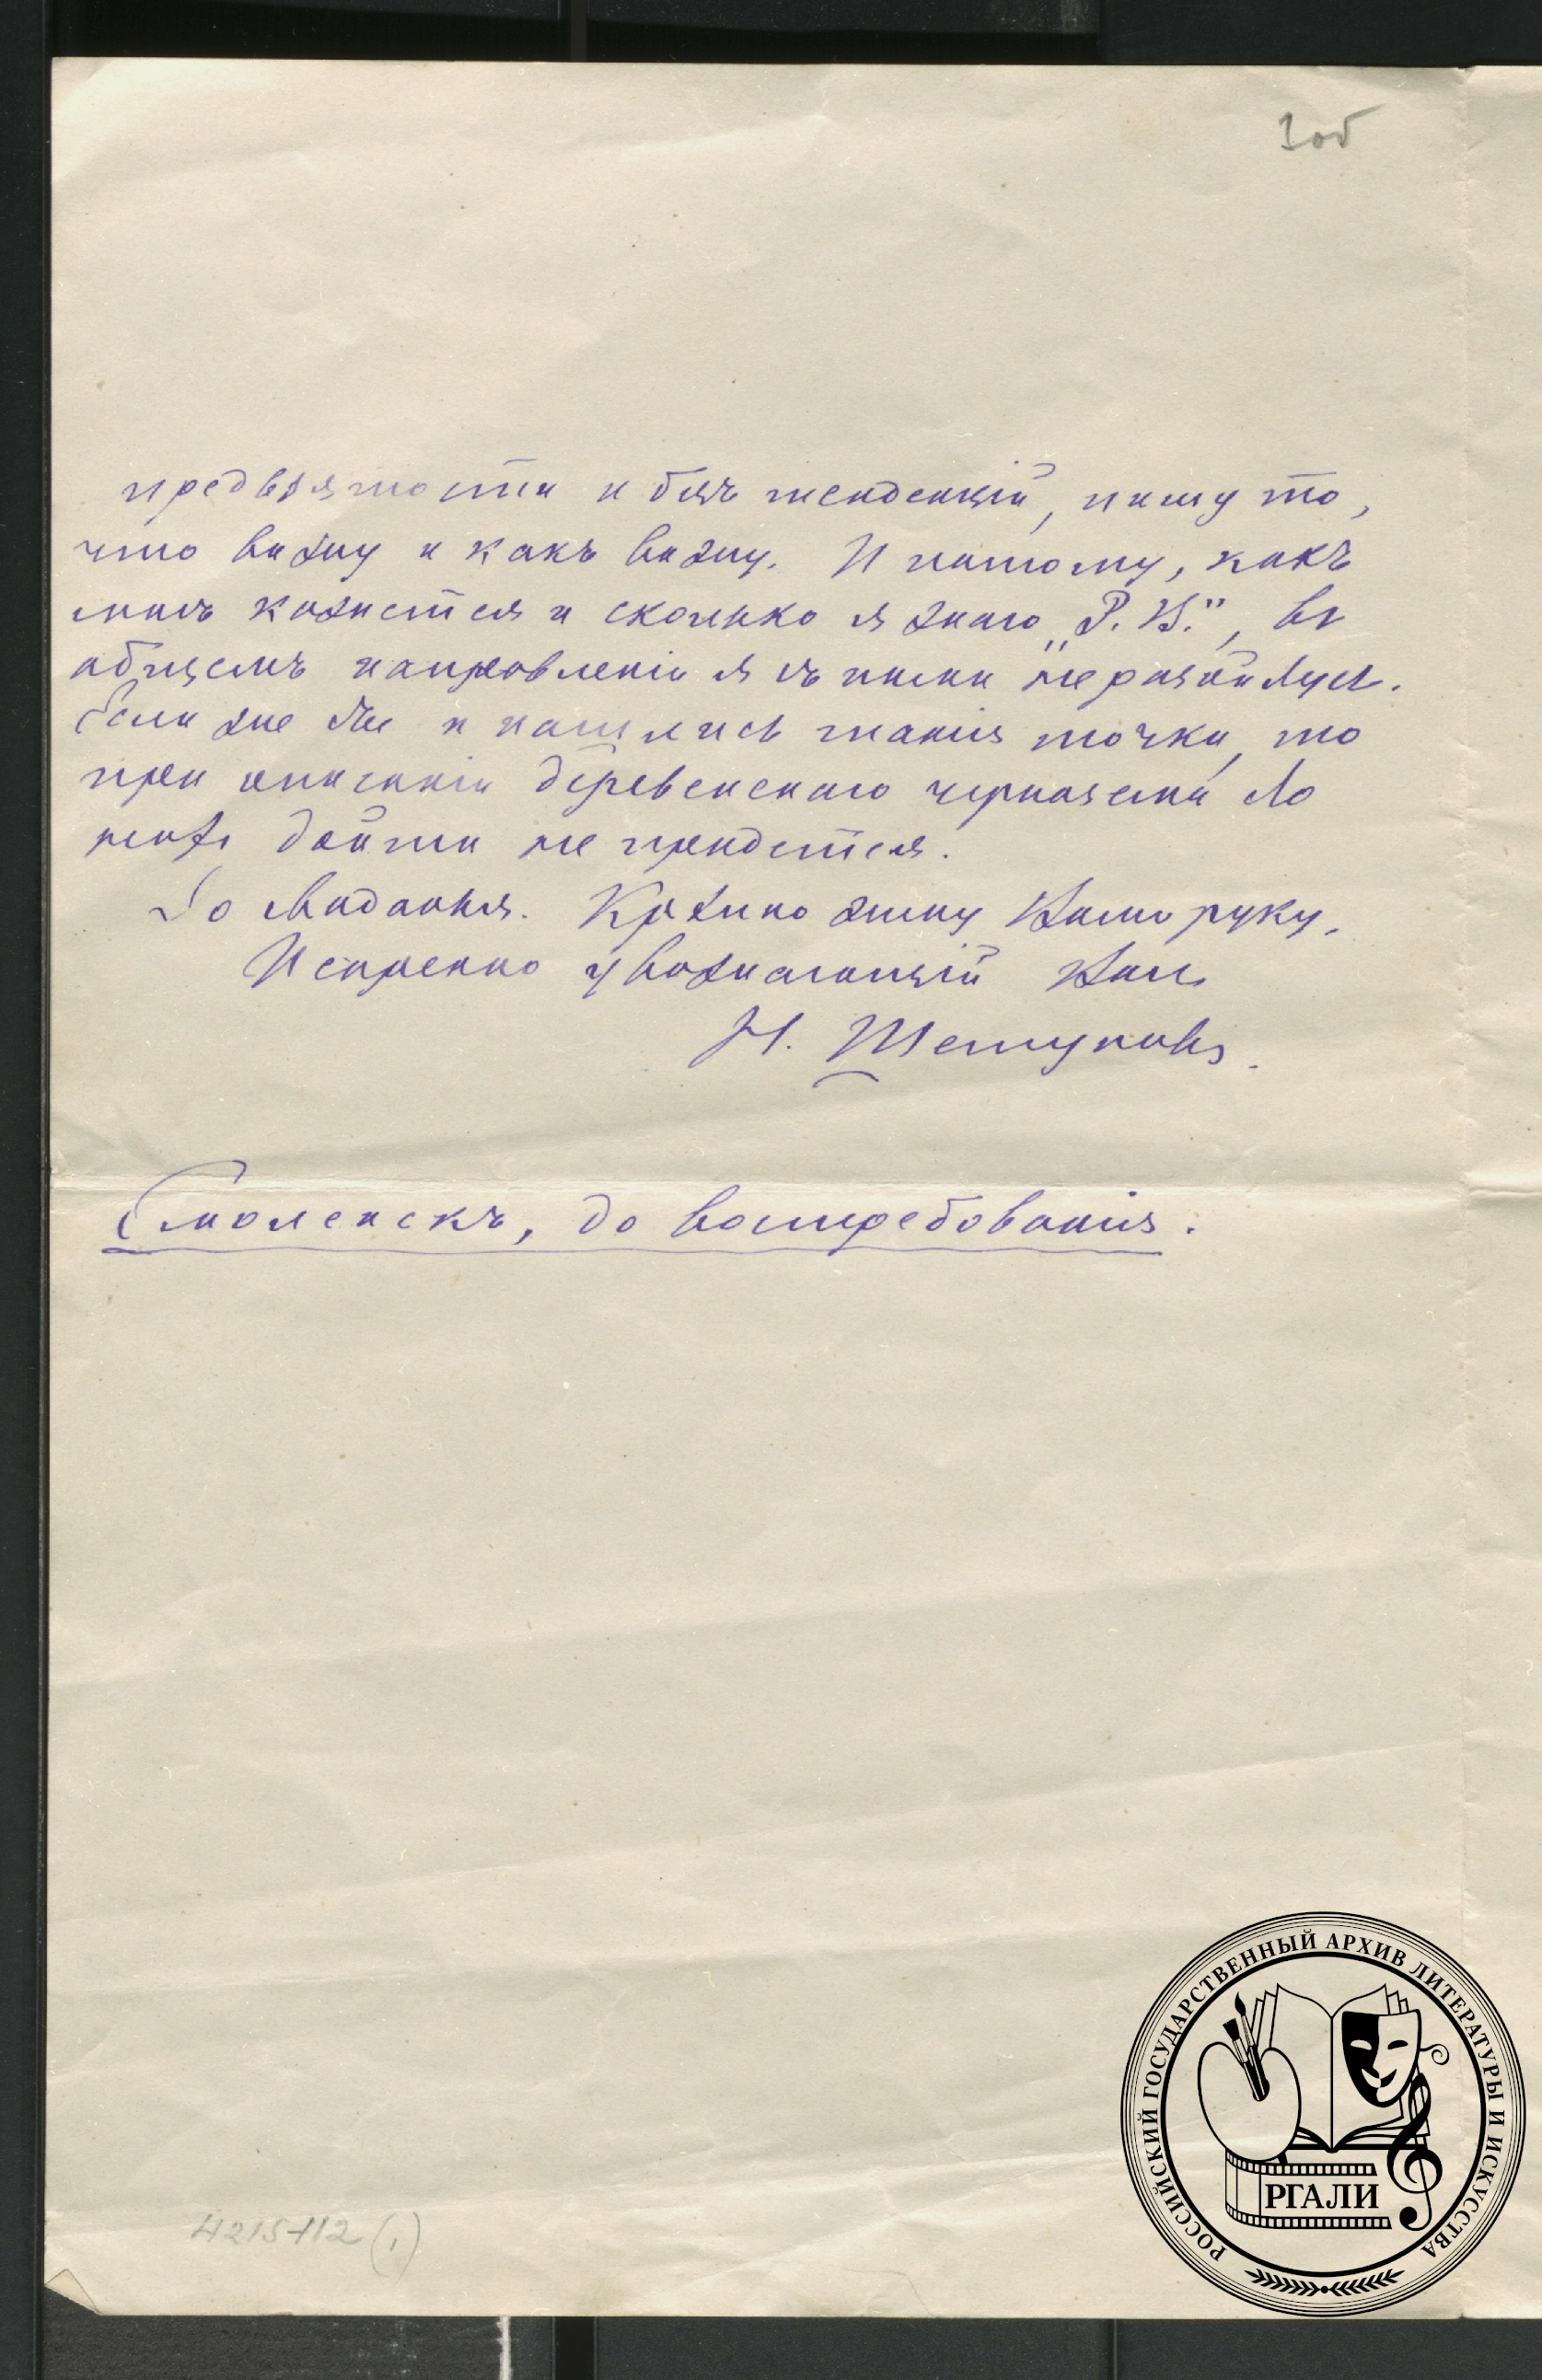 3об
предвзятости и безъ тенденцій, пишу то,
что вижу и какъ вижу. И потому, какъ
мнѣ кажется и сколько я знаю „Р. В.", въ
общемъ направленіи я съ ними не разойдусь.
Если же бы и нашлись такія точки, то
при описаніи деревенскаго чернозема до
нихъ дойти не придется.
До свиданья. Крѣпко жму Вашу руку.
Искренно уважающій Васъ
Н.
Смоленскъ, до востребованія.
4215-112 (1)
РОССИЙСКИЙ ГОСУДАРСТВЕННЫЙ АРХИВ ЛИТЕРАТУРЫ И ИСКУССТВА
РГАЛИ